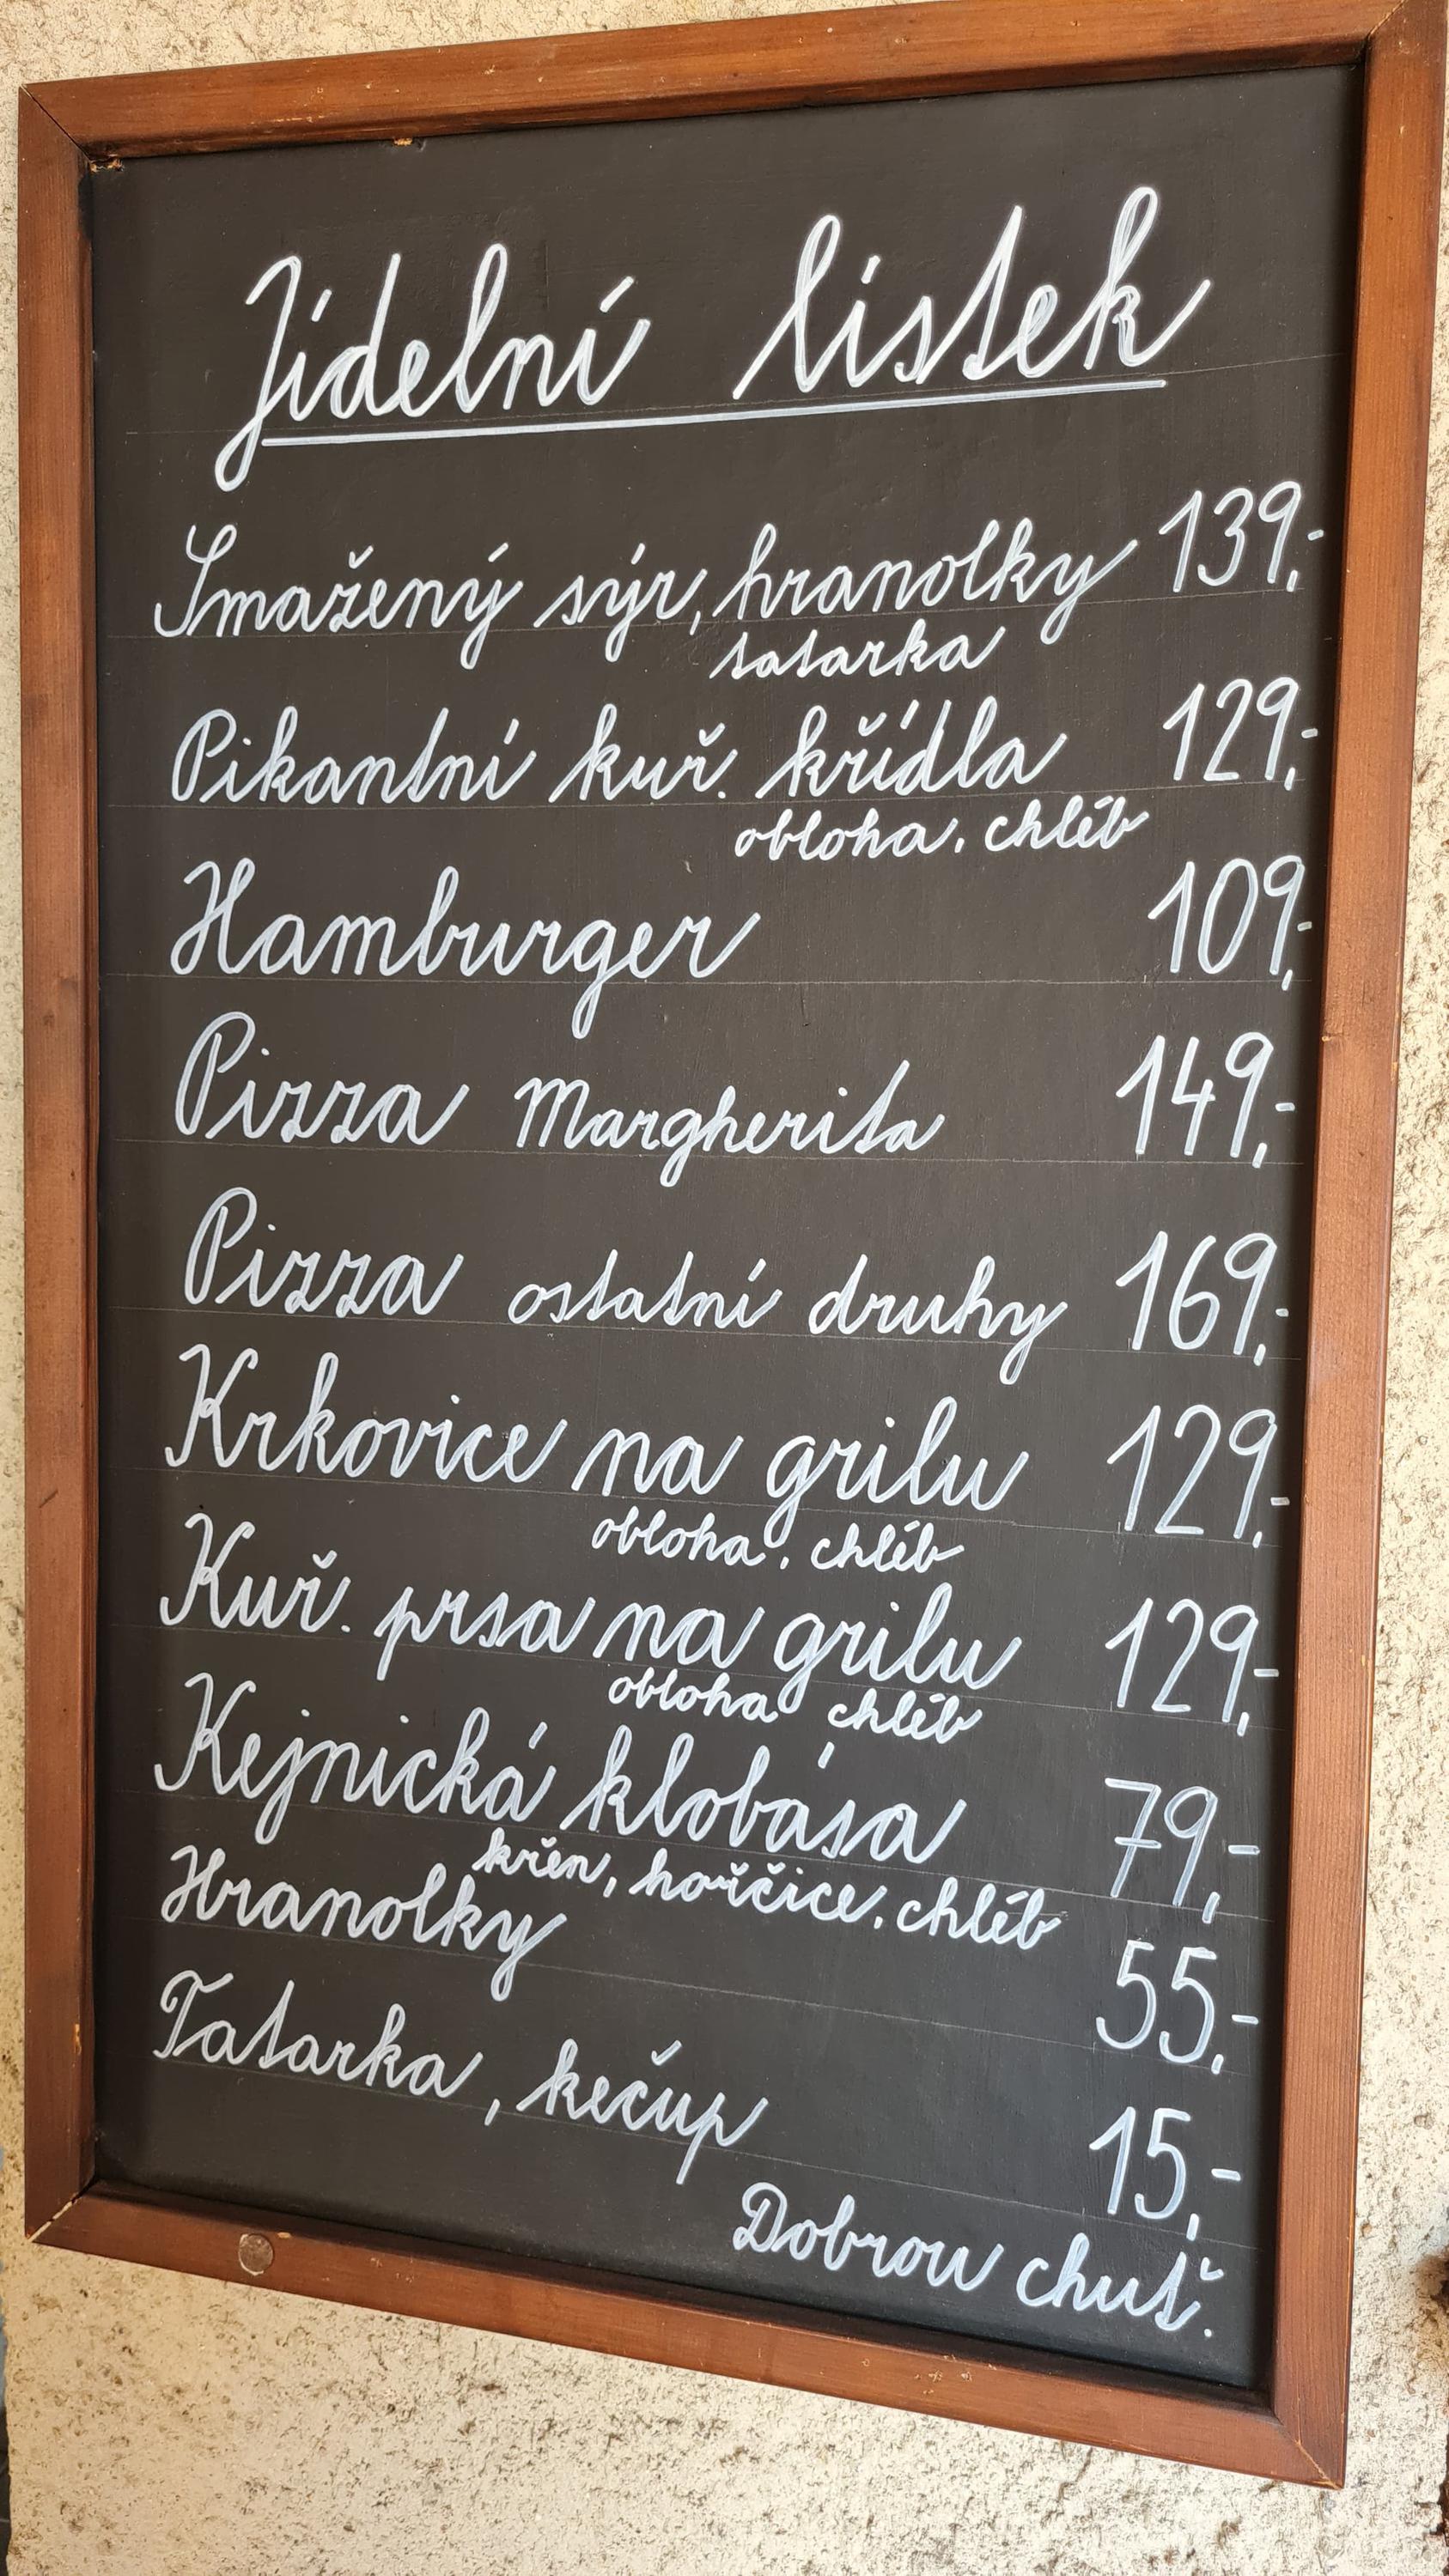 Jídelní lístek
Smažený sýr, hranolky 139,-
tatarka
Pikantní kuř. křídla 129,-
obloha, chléb
Hamburger 109,-
Pizza Margherita 149,-
Pizza ostatní druhy 169,-
Krkovice na grilu 129,-
obloha, chléb
Kuř. prsa na grilu 129,-
obloha, chléb
Kejnická klobása 79,-
křen, hořčice, chléb
Hranolky 55,-
Tatarka, kečup 15,-
Dobrou chuť.